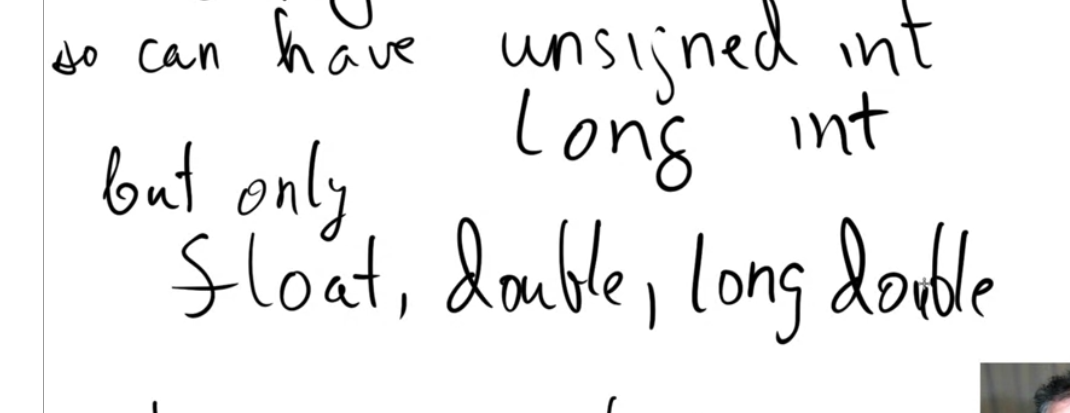 so can have unsigned int
long int
but only
float, double, long double